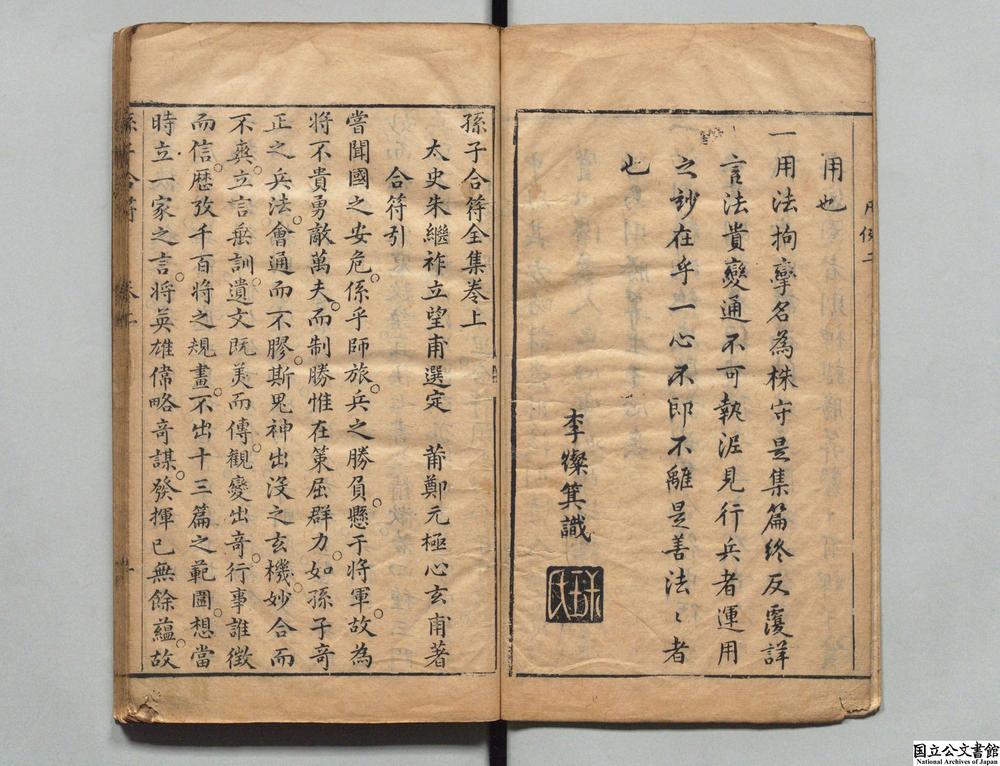 用也
一用法拘攣名為株守是集篇終反覆詳
言法貴變通不可執泥見行兵者運用
之妙在乎一心不即不離是善法〻者
也
李燦箕識
孫子合符全集卷上
太史朱繼祚立望甫選定 莆鄭元極心玄甫著
合符引
嘗聞國之安危係乎師旅兵之勝負懸于將軍故為
將不貴勇敵萬夫而制勝惟在策屈群力如孫子奇
正之兵法會通而不膠斯鬼神出没之玄機妙合而
不爽立言垂訓遺文既美而傳觀變出奇行事誰徵
而信歷攷千百將之規畫不出十三篇之範圍想當
時立一家之言將英雄偉略奇謀發揮已無餘蘊故
孫子合符 卷上
国立公文書館
National Archives of Japan